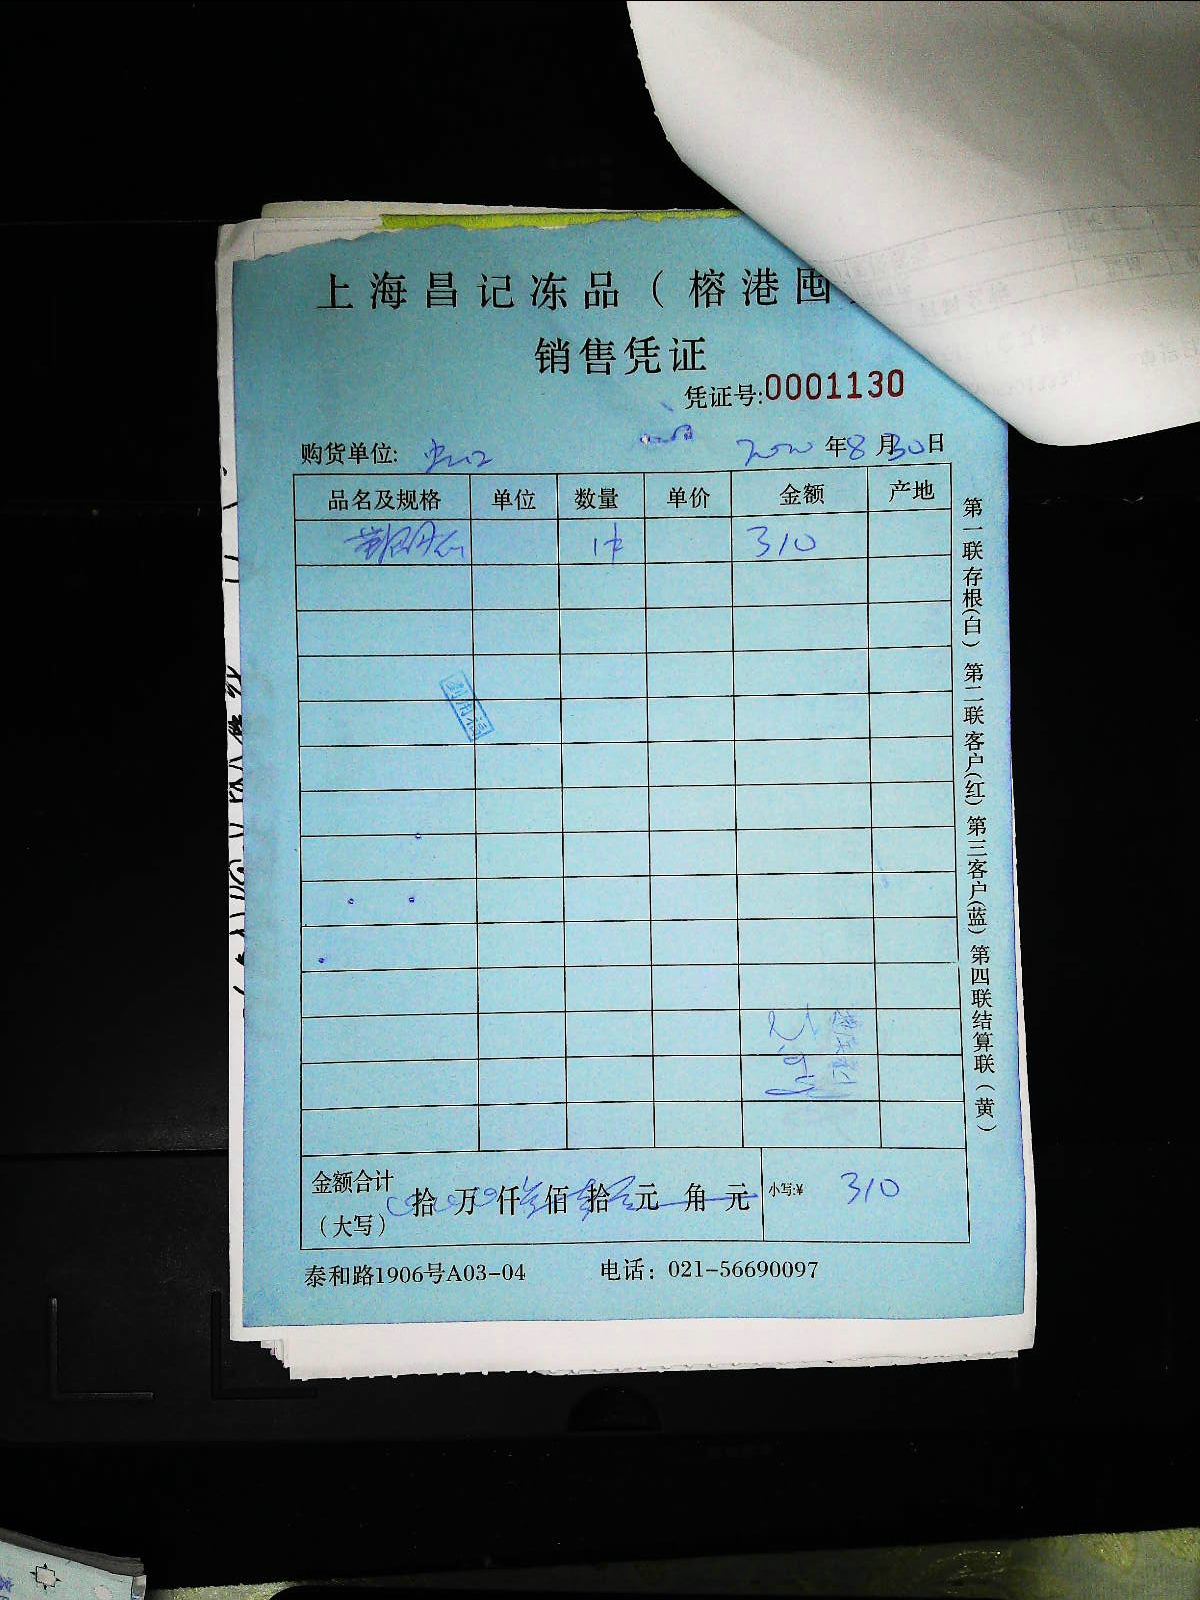 上海昌记冻品（榕港囤
销售凭证
凭证号:0001130
购货单位: 虹口 2020年8月30日
品名及规格 单位 数量 单价 金额 产地
1件 310
金额合计（大写） 拾万仟叁佰壹拾元角元 小写:¥ 310
泰和路1906号A03-04 电话：021-56690097
第一联存根(白) 第二联客户(红) 第三客户(蓝) 第四联结算联（黄）